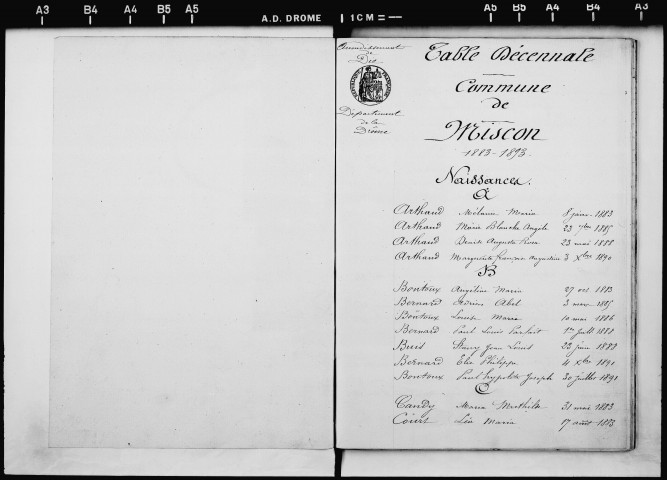 A3 B4 A4 B5 A5 A.D. DROME 1 CM = A5 B5 A4 B4 A3
Arrondissement
de
Die
Département
de la
Drôme
Table Décennale
Commune
de
Miscon
1883-1893
Naissances.
A
Arthaud Mélanie Maria 8 janv. 1883
Arthaud Marie Blanche Angèle 23 7bre 1885
Arthaud Auguste 23 mai 1888
Arthaud Marguerite Augustine 3 Xbre 1890
B
Bontoux Angéline Maria 27 1883
Bernard Abel 3 1885
Bontoux Louise Maria 10 mai 1886
Bernard Paul Louis Parfait 1er juill. 1888
Buis Henry Jean Louis 22 juin 1889
Bernard Elie Philippe 4 Xbre 1891
Bontoux Paul hypolite Joseph 30 juillet 1891
C
Candy Maria Mathilde 31 mai 1883
Court Léa Maria 17 août 1883